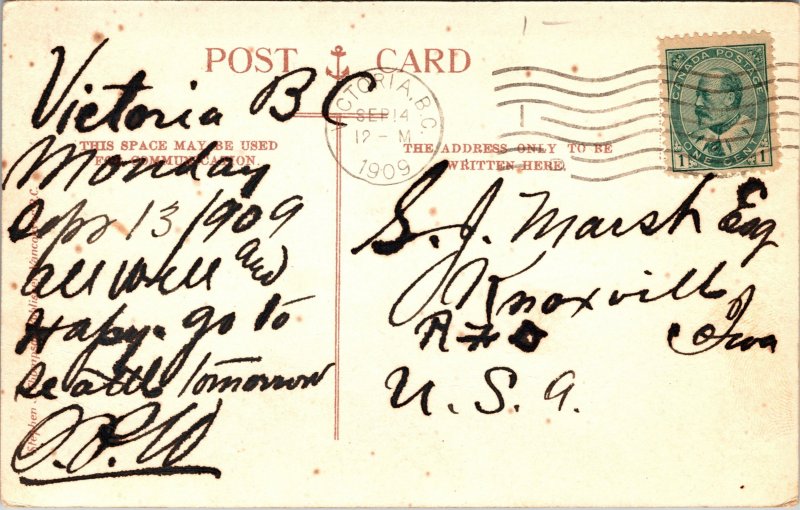 POST CARD
THIS SPACE MAY BE USED
FOR COMMUNICATION.
THE ADDRESS ONLY TO BE
WRITTEN HERE.
Victoria B C
Monday
Sept 13/1909
all well and
Hapy. go to
Seattle tomorrow
VICTORIA, B.C.
SEP 14
12 - M
1909
CANADA POSTAGE
1 ONE CENT 1
S. J. Marsh Esq
Knoxville
Iowa
U. S. A.